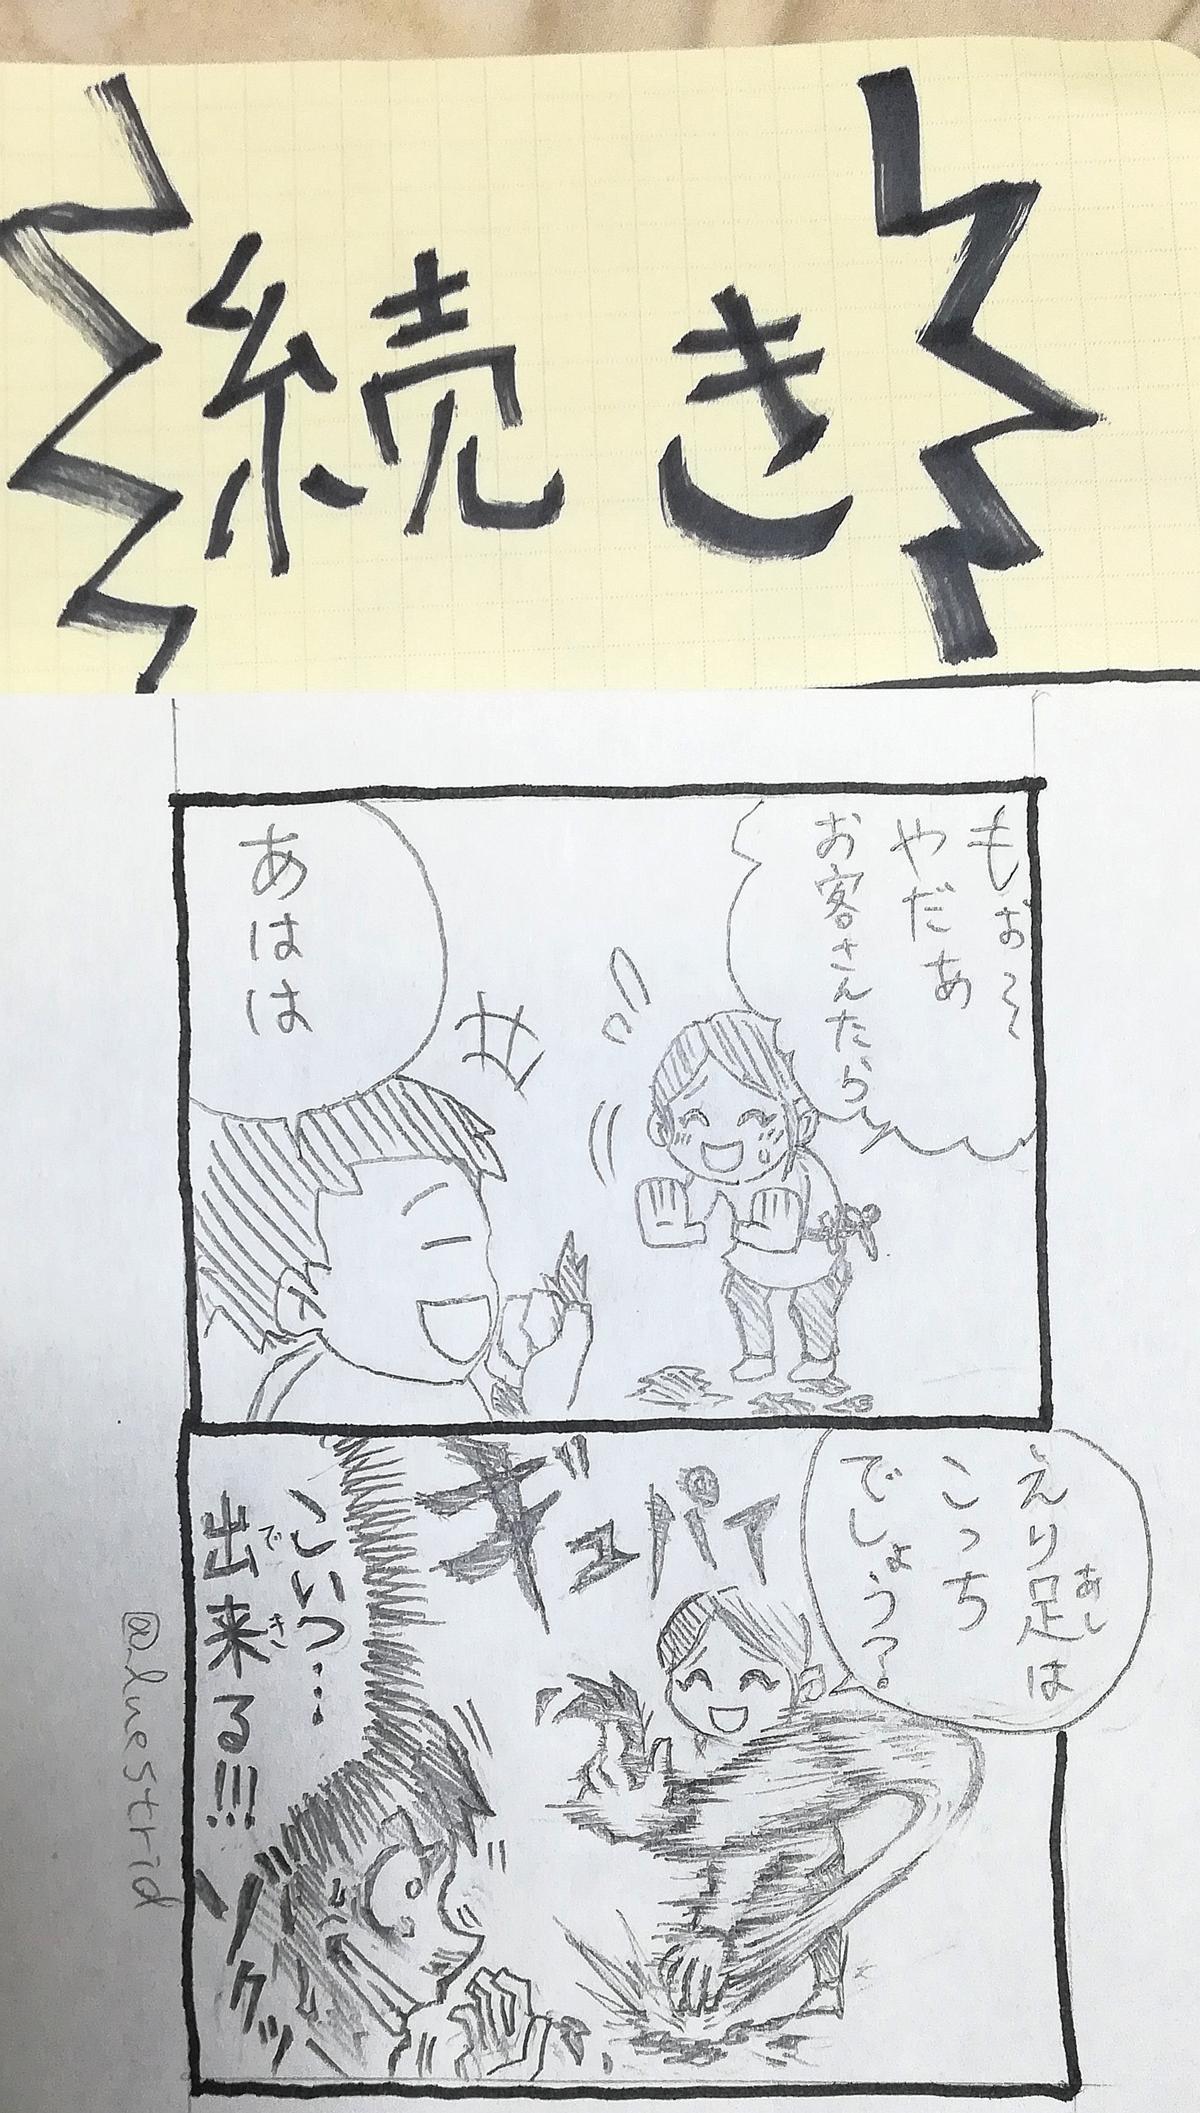 続き
もぉ〜
やだぁ
お客さんたら
あはは
えり足は
あし
こっち
でしょう?
ギュパァ
こいつ…
出来る!!!
でき
ゾクッ
@luestrid